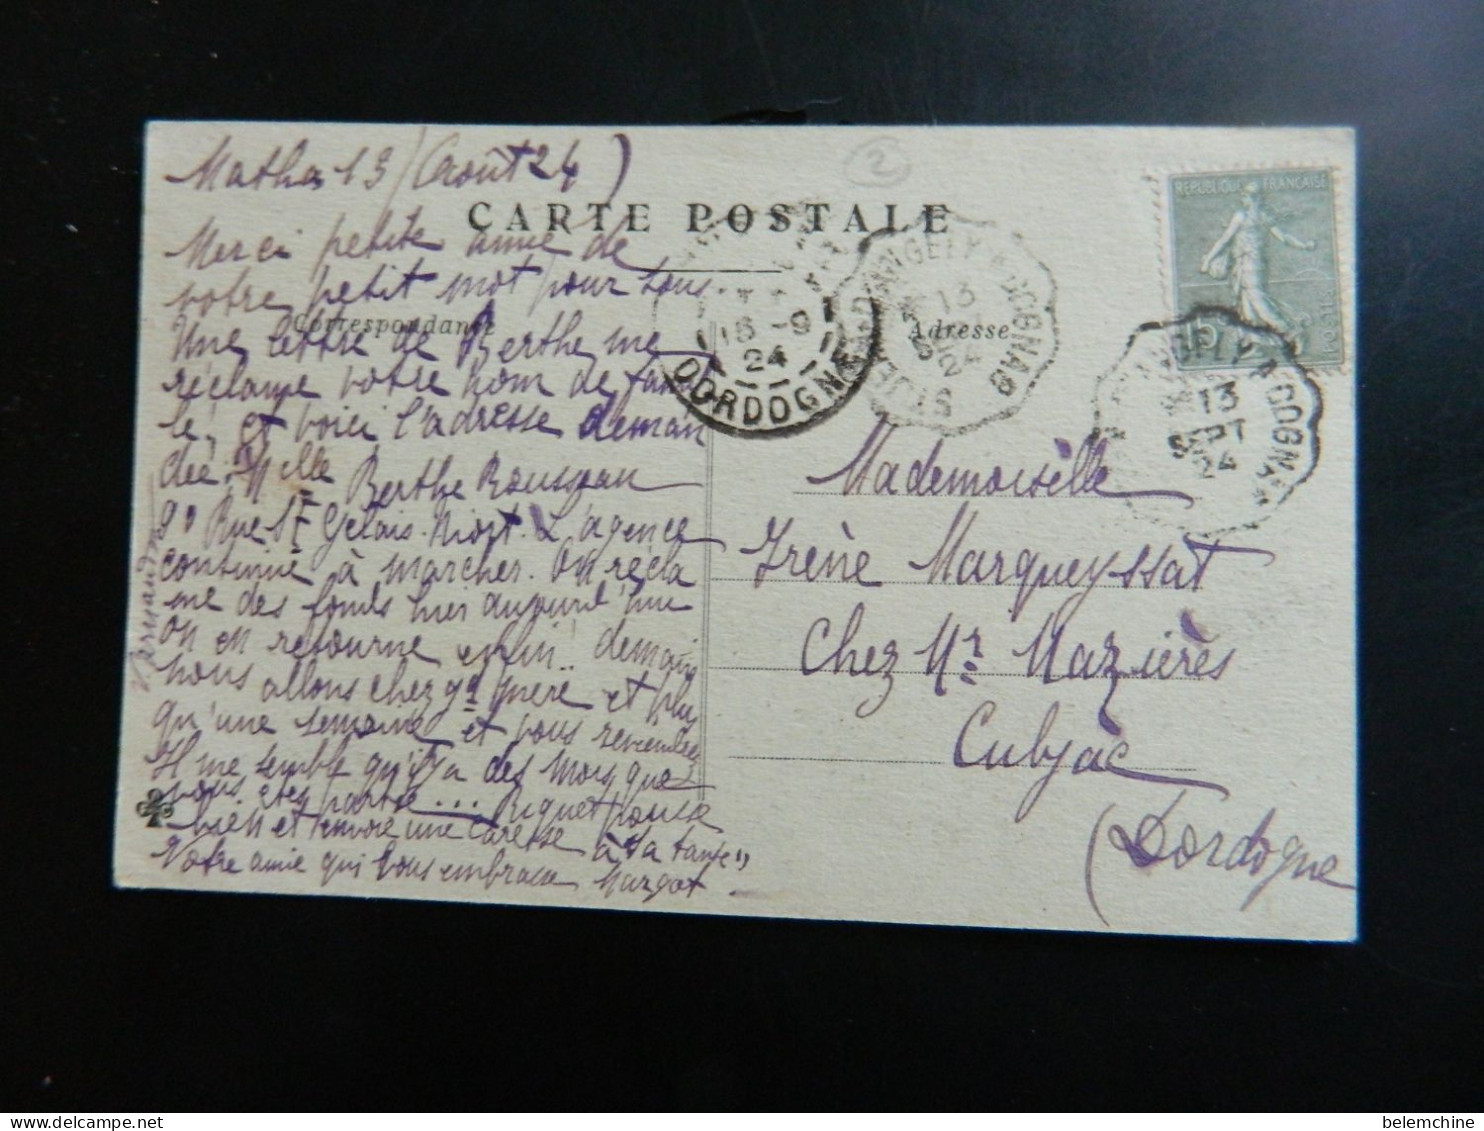 Matha 13 (Août 24)
CARTE POSTALE
Merci petite amie de
votre petit mot pour tous.
Correspondance
Adresse
Une lettre de Berthe me
réclame votre nom de famil
le, et voici l'adresse deman
dée. Melle Berthe Rousseau
90 Rue St Gelais. Niort. L'agence
continue à marcher. On récla
me des fonds hier aujourd'hui
on en retourne enfin.. demain
nous allons chez gd mère et plus
qu'une semaine et vous
Il me semble qu'il y a des mois que
vous êtes partie... Riquet pousse
bien et envoie une caresse à "sa tante"
Votre amie qui vous embrasse Margot
Mademoiselle
Irène Marqueyssat
Chez Mr Mazières
Cubjac
(Dordogne
REPUBLIQUE FRANÇAISE
15c
POSTES
16 -9
24
DORDOGNE
ANGELY A COGNAC
13
24
ANGELY A COGNAC
13
24
2
belemchine